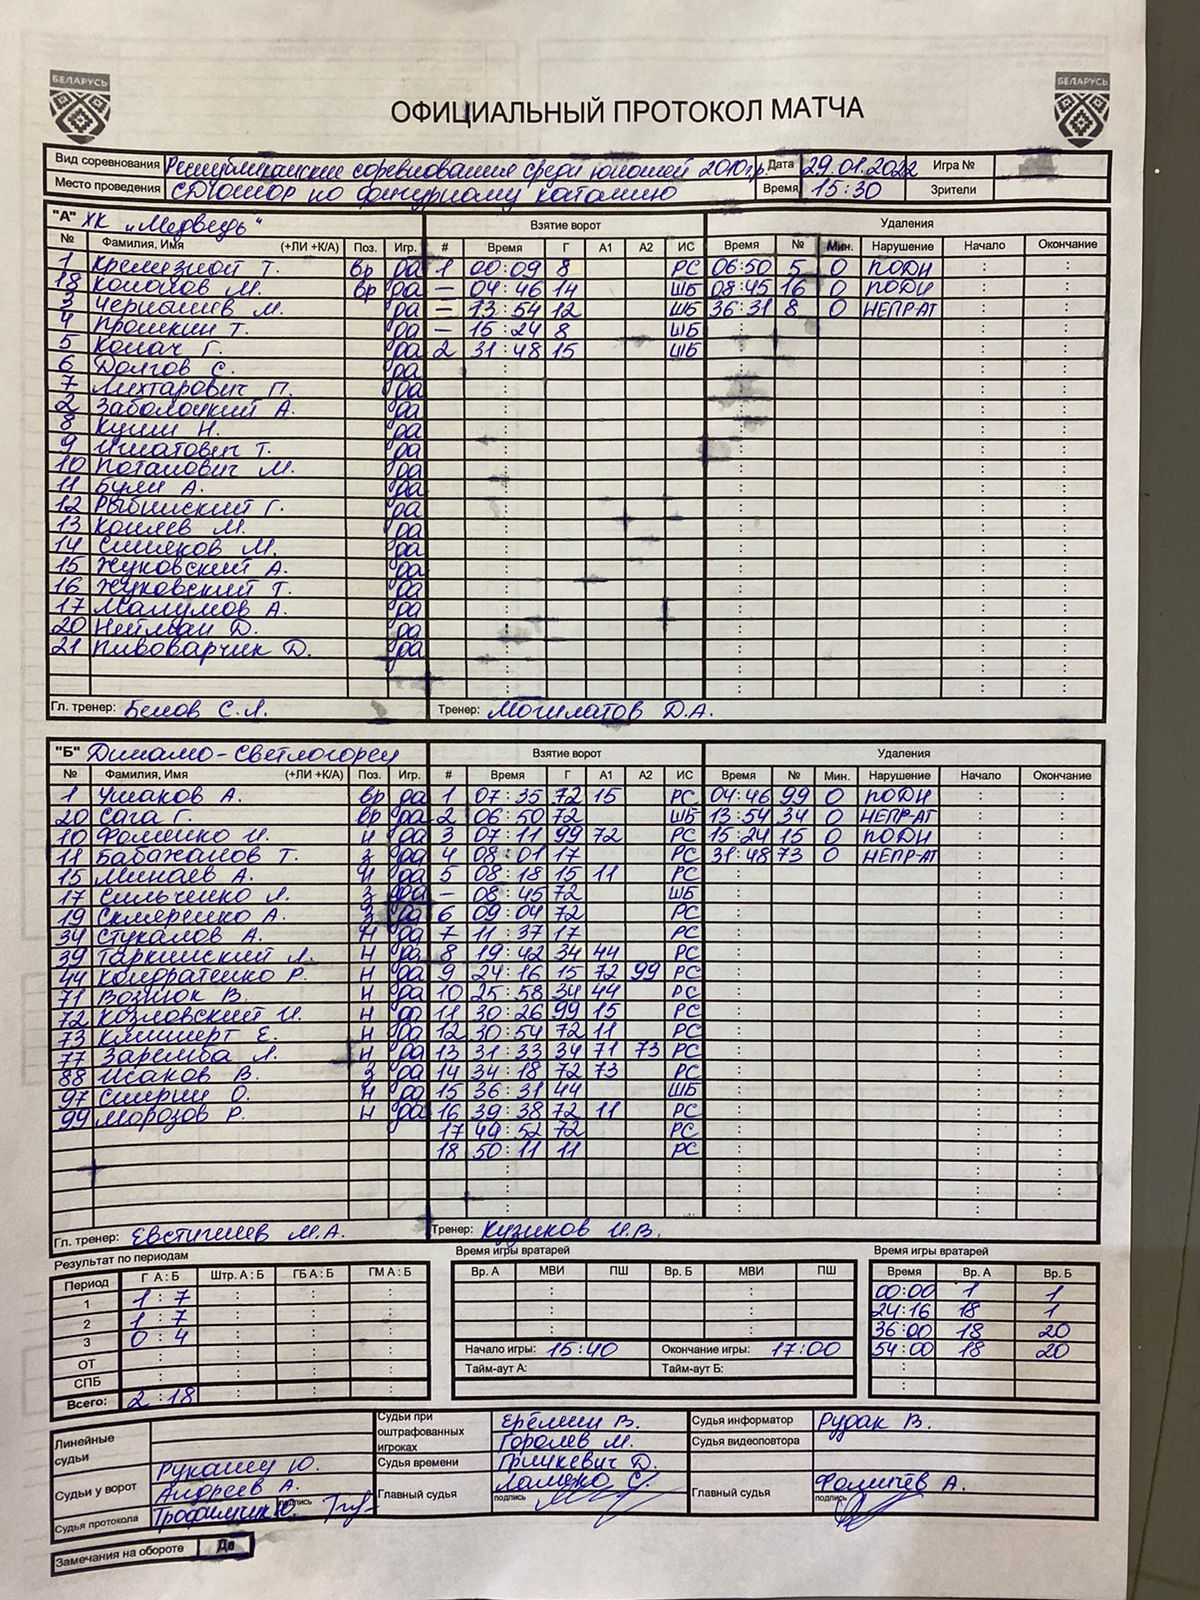 БЕЛАРУСЬ БЕЛАРУСЬ
ОФИЦИАЛЬНЫЙ ПРОТОКОЛ МАТЧА
Вид соревнования Республиканские соревнования среди юношей 2010г.р. Дата 29.01.2022 Игра №
Место проведения СДЮШОР по фигурному катанию Время 15:30 Зрители
"А" ХК "Медведь" Взятие ворот Удаления
№ Фамилия, Имя (+ЛИ +К/А) Поз. Игр. # Время Г А1 А2 ИС Время № Мин. Нарушение Начало Окончание
1 Кремезной Т. вр да 1 00:09 8 РС 06:50 5 0 ПОДН
18 Копалов М. вр да – 04:46 14 ШБ 08:45 16 0 ПОДН
3 Чернышев М. да – 13:54 12 ШБ 36:31 8 0 НЕПР-АТ
4 Прошкин Т. да – 15:24 8 ШБ
5 Колач Г. да 2 31:48 15 ШБ
6 Долгов С. да
7 Лихтарович П. да
2 Заболоцкий А. да
8 Кушн Н. да
9 Игнатович Т. да
10 Потапович М. да
11 Були А. да
12 Рыбинский Г. да
13 Кошлев М. да
14 Симаков М. да
15 Жуковский А. да
16 Жуковский Т. да
17 Малумов А. да
20 Нейман Д. да
21 Пивоварчик Д. да
Гл. тренер: Белов С.Л. Тренер: Могилатов Д.А.
"Б" Динамо-Светлогорец Взятие ворот Удаления
№ Фамилия, Имя (+ЛИ +К/А) Поз. Игр. # Время Г А1 А2 ИС Время № Мин. Нарушение Начало Окончание
1 Ушаков А. вр да 1 07:35 72 15 РС 04:46 99 0 ПОДН
20 Сага Г. вр да 2 06:50 72 ШБ 13:54 34 0 НЕПР-АТ
10 Фоменко И. н да 3 07:11 99 72 РС 15:24 15 0 ПОДН
11 Бабажанов Т. з да 4 08:01 17 РС 31:48 73 0 НЕПР-АТ
15 Минаев А. н да 5 08:18 15 11 РС
17 Сильченко Л. з да – 08:45 72 ШБ
19 Скляренко А. з да 6 09:04 72 РС
34 Стукалов А. н да 7 11:37 17 РС
39 Таркинский Л. н да 8 19:42 34 44 РС
44 Кондратенко Р. н да 9 24:16 15 72 99 РС
71 Вознюк В. н да 10 25:58 34 44 РС
72 Козловский И. н да 11 30:26 99 15 РС
73 Климперт Е. н да 12 30:54 72 11 РС
77 Заремба Л. н да 13 31:33 34 71 73 РС
88 Исаков В. з да 14 34:18 72 73 РС
97 Смирин О. н да 15 36:31 44 ШБ
99 Морозов Р. н да 16 39:38 72 11 РС
17 49:52 72 РС
18 50:11 11 РС
Гл. тренер: Евстигнеев М.А. Тренер: Кузиков И.В.
Результат по периодам Время игры вратарей Время игры вратарей
Период Г А : Б Штр. А : Б ГБ А : Б ГМ А : Б Вр. А МВИ ПШ Вр. Б МВИ ПШ Время Вр. А Вр. Б
1 1 : 7 00:00 1 1
2 1 : 7 24:16 18 1
3 0 : 4 36:00 18 20
ОТ Начало игры: 15:40 Окончание игры: 17:00 54:00 18 20
СПБ Тайм-аут А: Тайм-аут Б:
Всего: 2 : 18
Линейные судьи Судьи при оштрафованных игроках Ерёмин В. Судья информатор Рудак В.
Горолев М. Судья видеоповтора
Судьи у ворот Рукашец Ю. Судья времени Гринкевич Д.
Андреев А. Главный судья Ламеко С. Главный судья Фомичёв А.
подпись подпись
Судья протокола Трофимчик Ю. подпись
Замечания на обороте Да